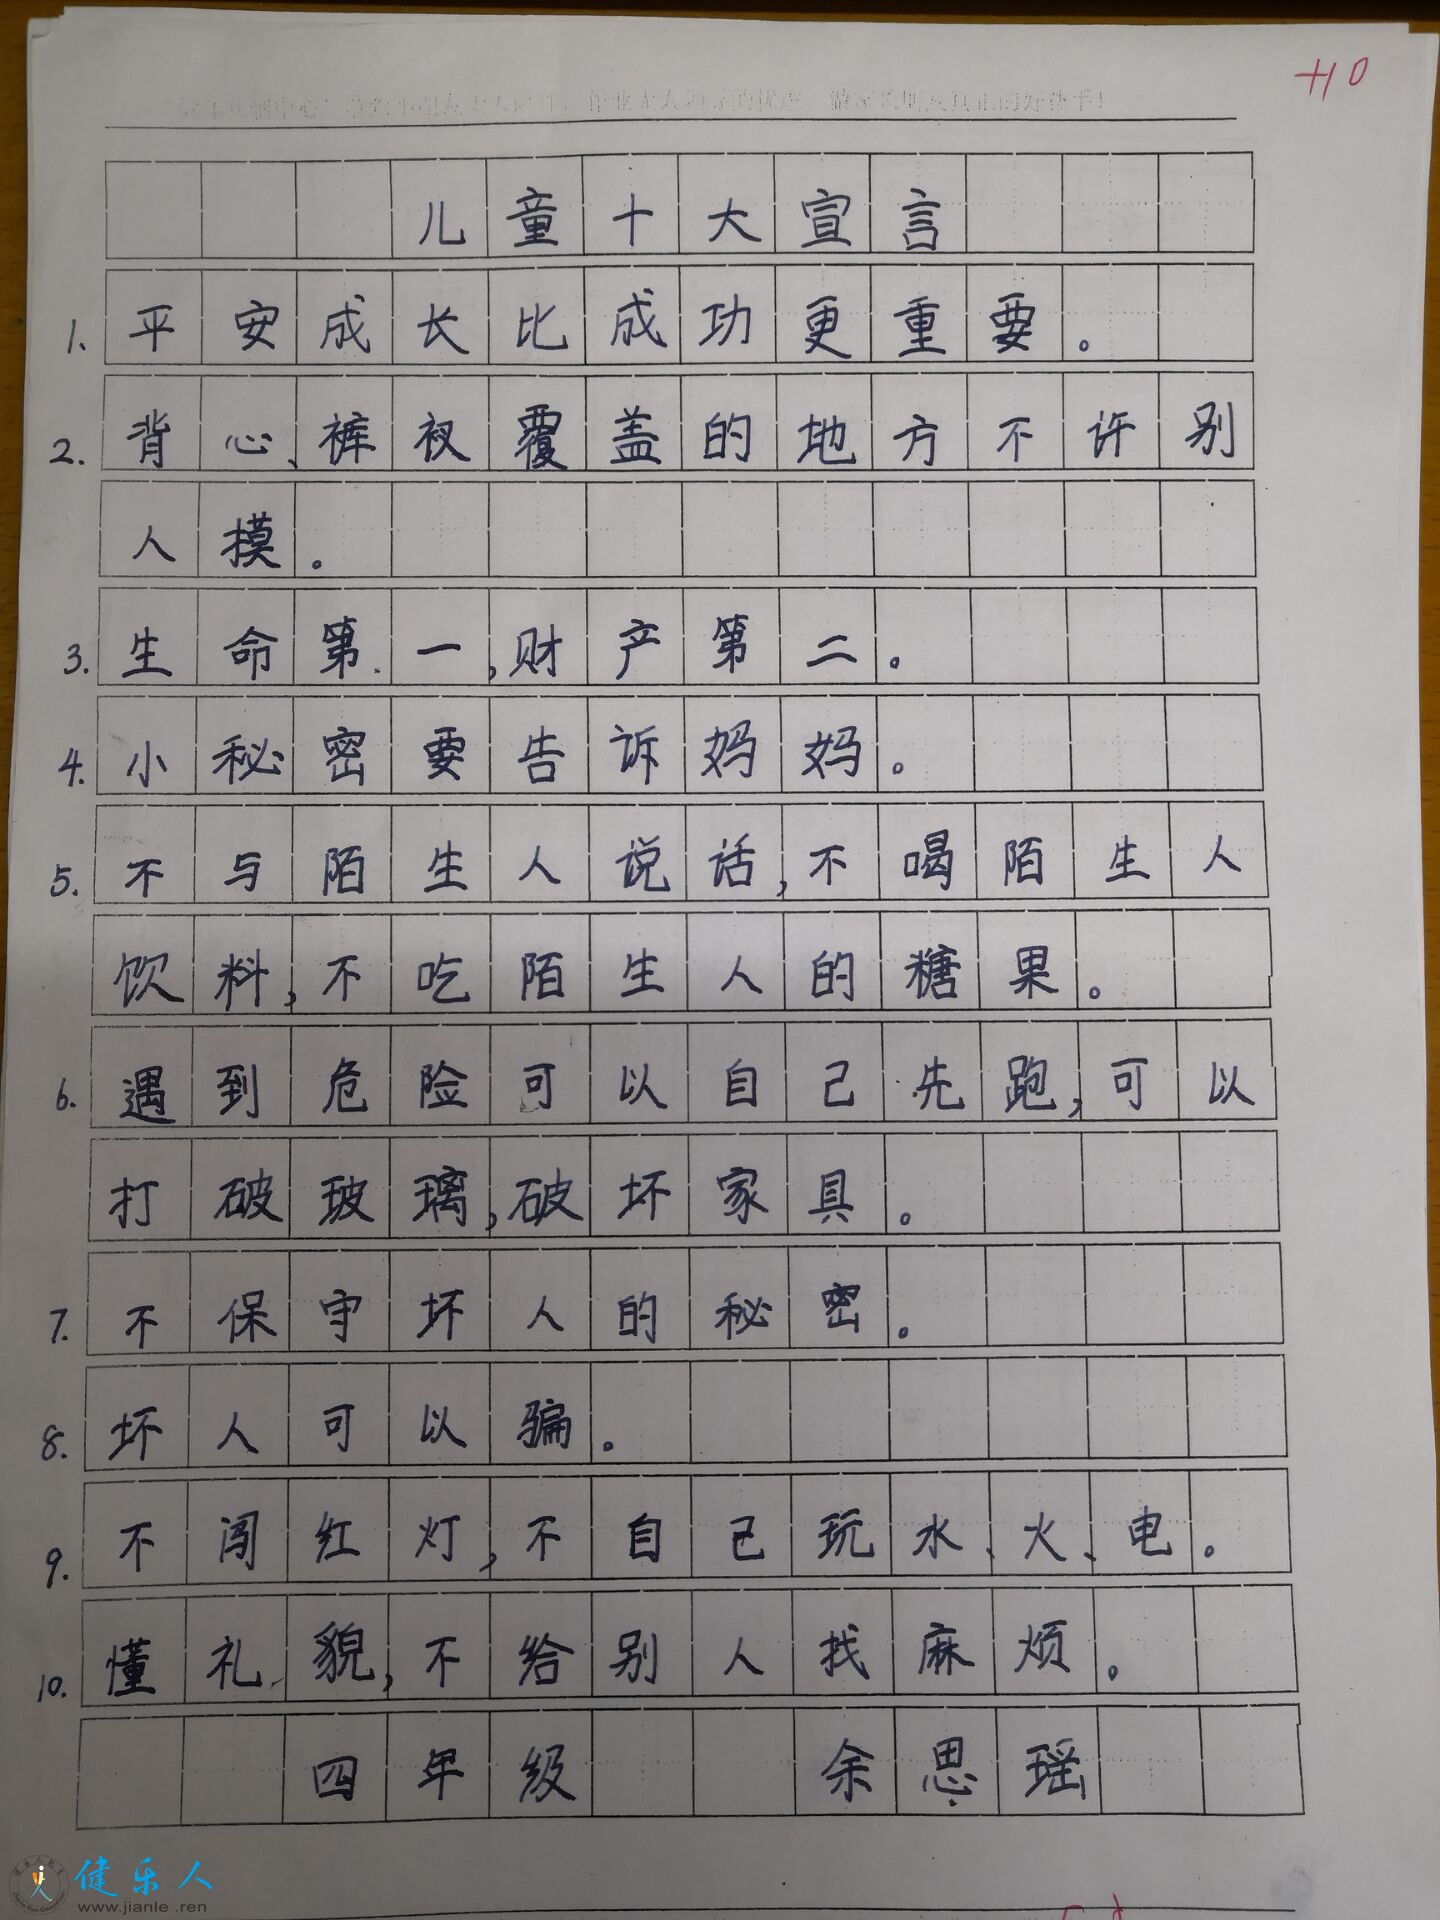 +10
儿童十大宣言
1. 平安成长比成功更重要。
2. 背心、裤衩覆盖的地方不许别
人摸。
3. 生命第一,财产第二。
4. 小秘密要告诉妈妈。
5. 不与陌生人说话,不喝陌生人
饮料,不吃陌生人的糖果。
6. 遇到危险可以自己先跑,可以
打破玻璃,破坏家具。
7. 不保守坏人的秘密。
8. 坏人可以骗。
9. 不闯红灯,不自己玩水、火、电。
10. 懂礼貌,不给别人找麻烦。
四年级 余思瑶
健乐人
www.jianle.ren